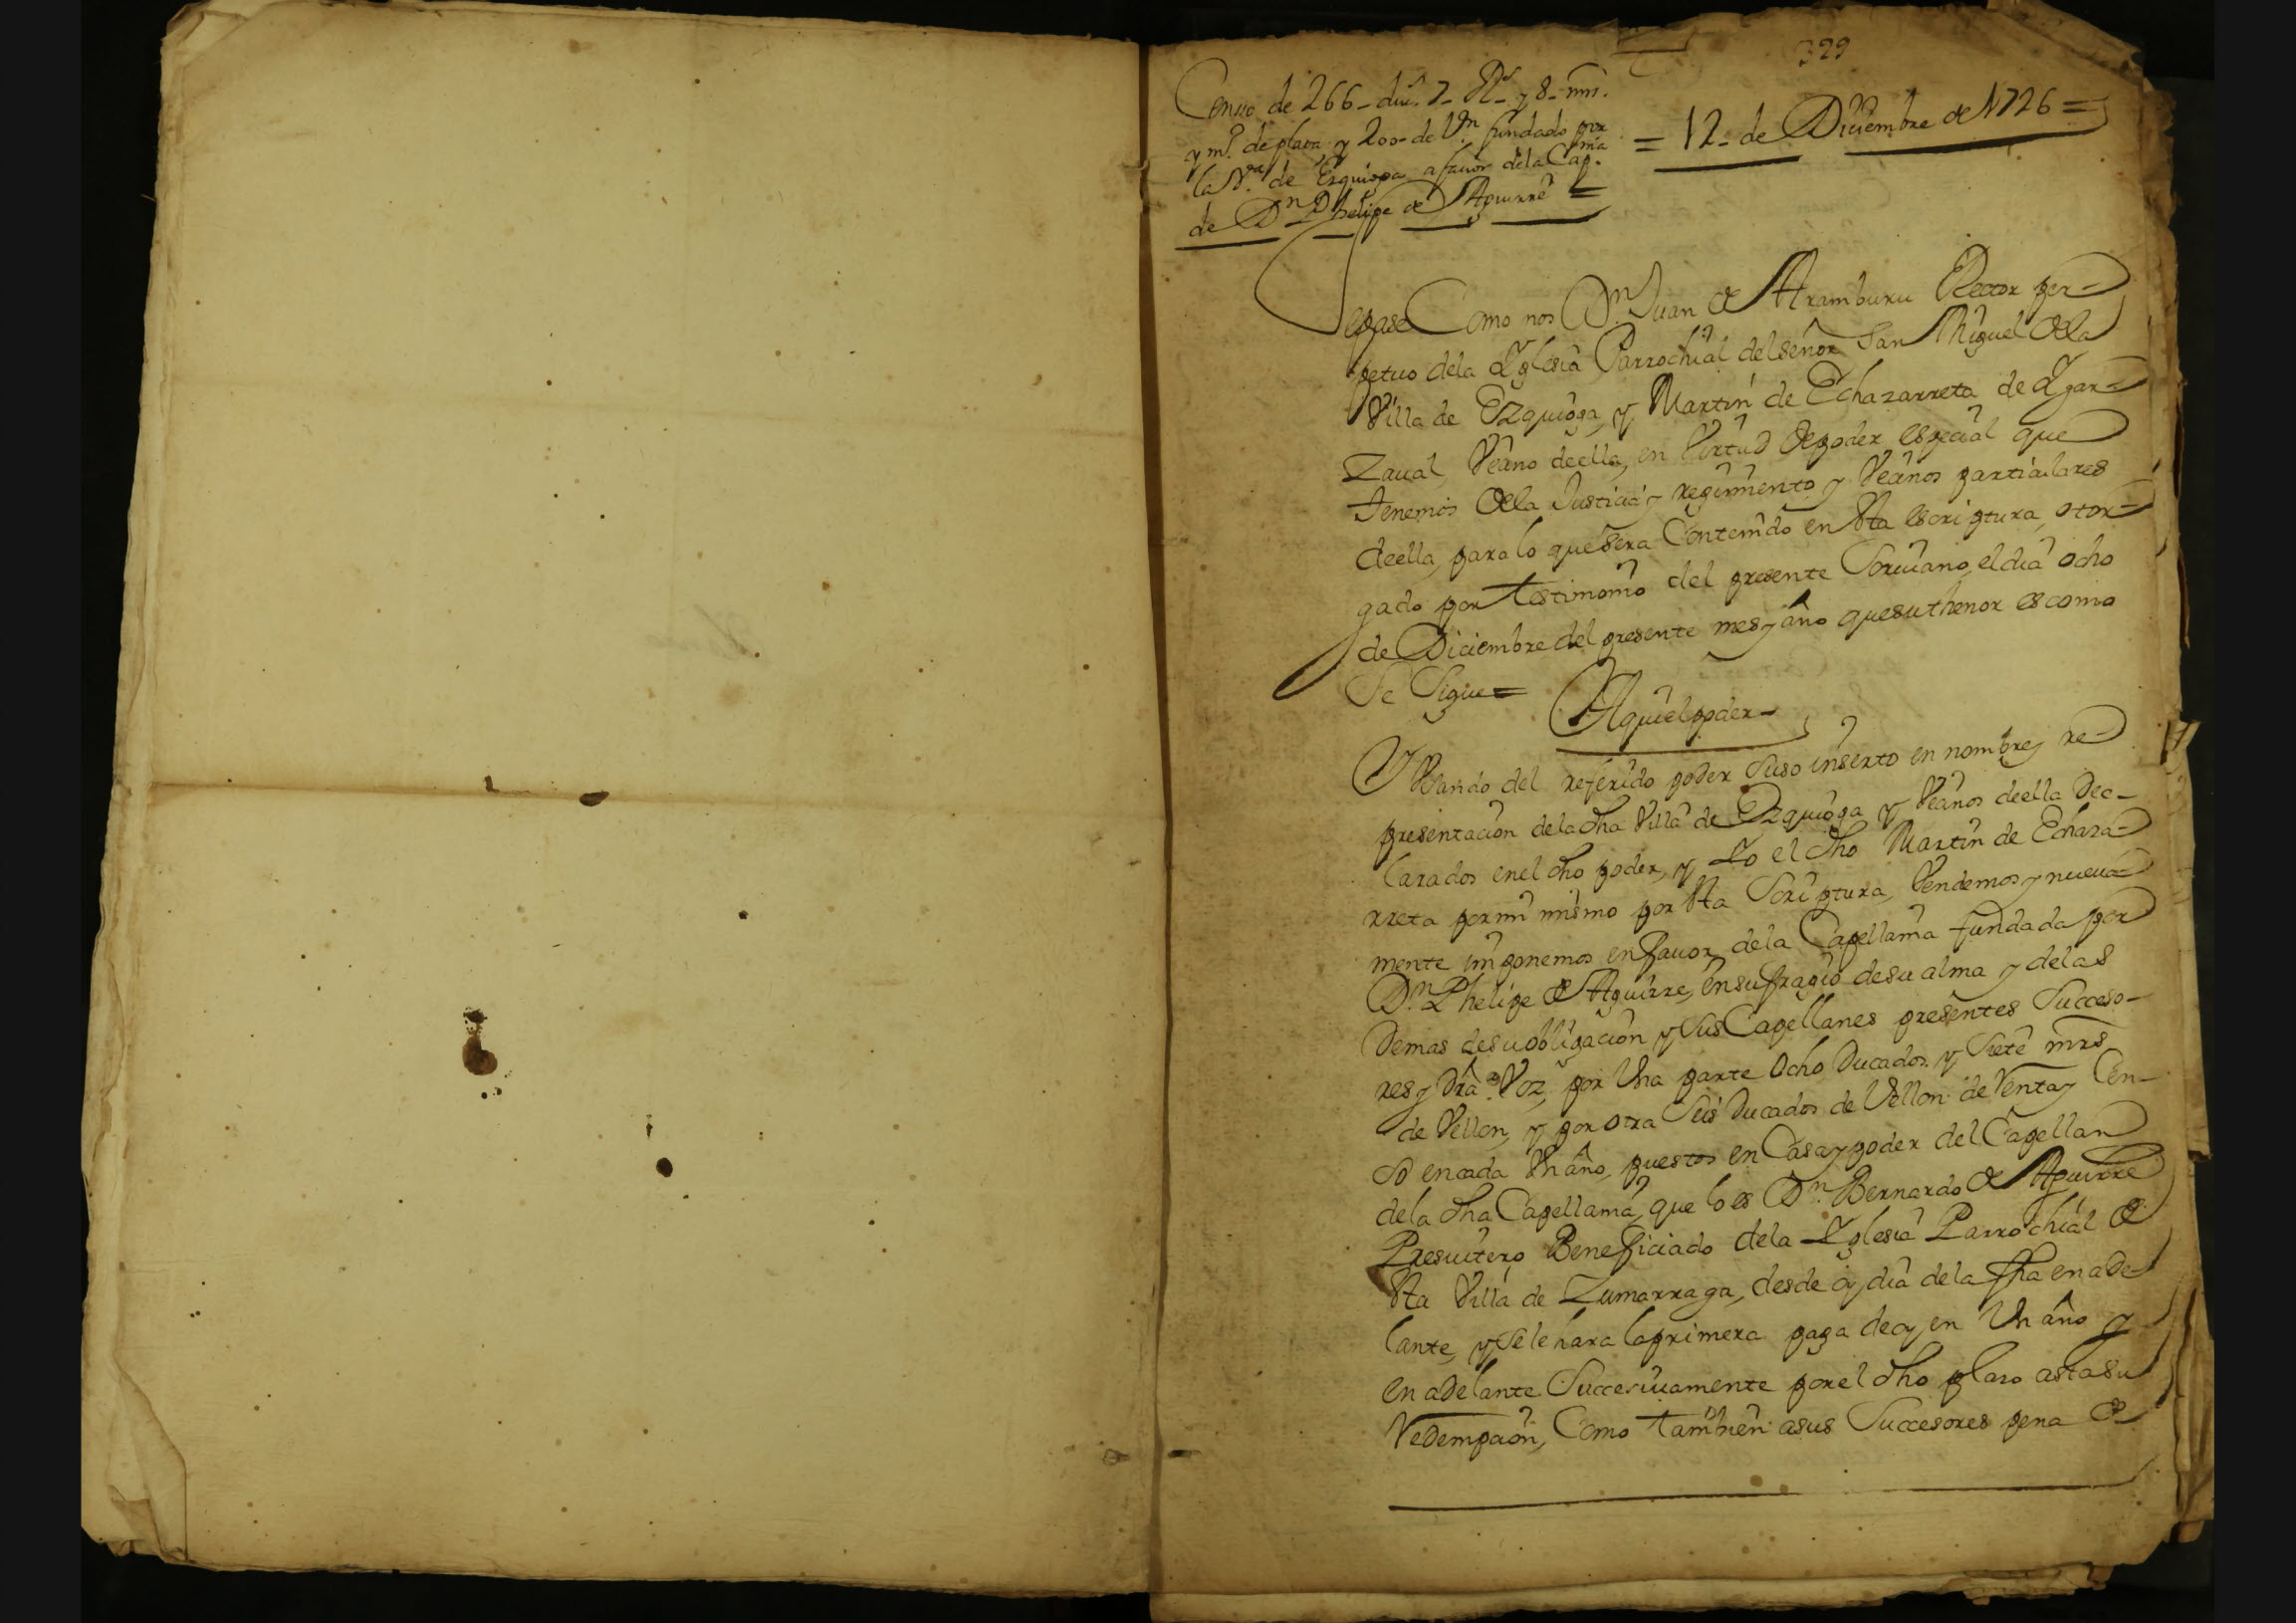 329
Censo de 266 duc.s 7 R.s y 8 mrs.
y m.o de plata y 200 de Vn fundado por
la V.a de Ezquioga a favor de la Cap.nia
de Dn Phelipe de Aguirre =
= 12 de Diciembre de 1726 =
Sepase Como nos Dn Juan de Aramburu Rector per-
petuo dela Yglesia Parrochial del señor San Miguel dela
Villa de Ezquioga, y Martin de Echazarreta de Ygar-
zaual Veano deella, en Vertud de poder especial que
tenemos dela Justicia y regimiento y Veanos particulares
deella, para lo que sera Contenido en Sta escriptura, otor-
gado por testimonio del presente Scriuano, el dia ocho
de Diciembre del presente mes y año que su thenor es como
Se Sigue =
Aqui el poder -
Y Vsando del referido poder Suso inserto en nombre y re-
presentacion dela dha Villa de Ezquioga y Veanos deella dec-
larados en el dho poder, y Yo el dho Martin de Echaza-
rreta por mi mismo por Sta Scriptura, Vendemos y nueua-
mente imponemos en fauor dela Capellania fundada por
Dn Phelipe de Aguirre, en sufragio de su alma y delas
demas de su obligacion y Sus Capellanes presentes Succeso-
res y dra Voz, por Vna parte Ocho Ducados y Siete mrs
de Vellon, y por otra Seis Ducados de Vellon de Venta y Cen-
so en cada Vn año, puestos en Casa y poder del Capellan
dela dha Capellania, que lo es Dn Bernardo de Aguirre
Presuitero Beneficiado dela Yglesia Parrochial de
Sta Villa de Zumarraga, desde oy dia dela fha en ade-
lante, y Se le hara la primera paga de oy en Vn año y
en adelante Succesiuamente por el dho plazo asta su
Redempcion, Como tambien a sus Succesores pena de